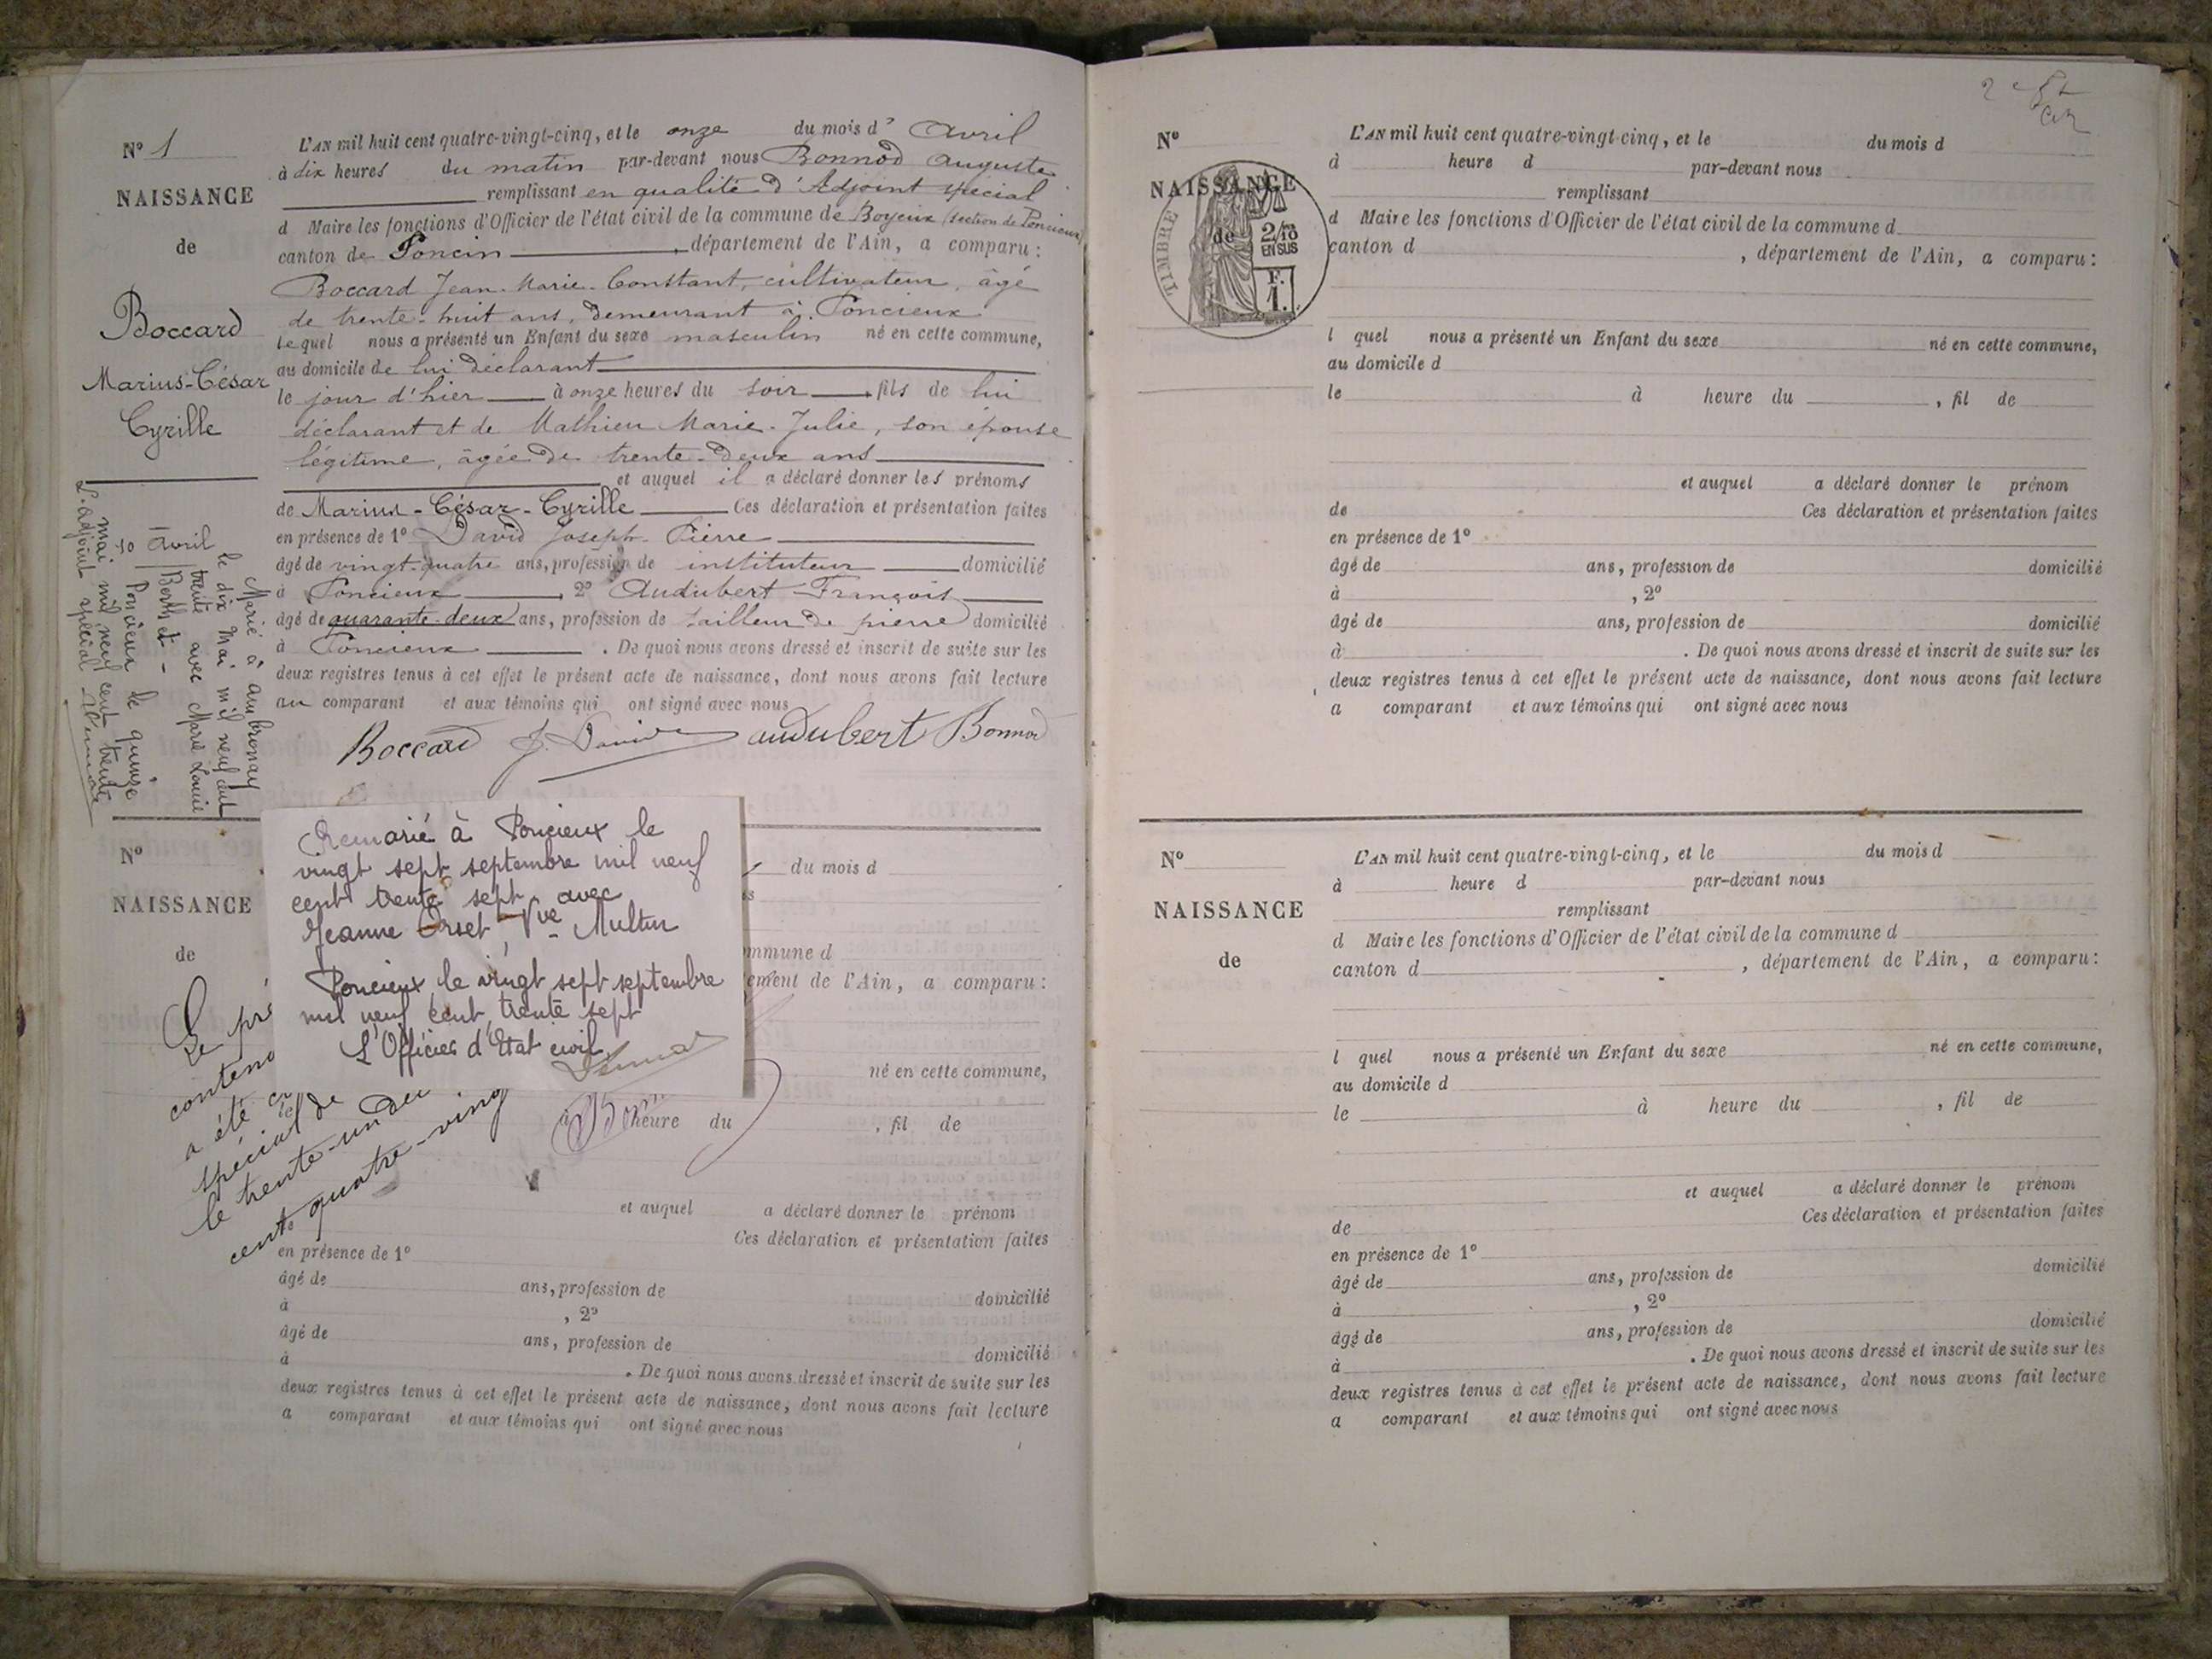 N° 1
NAISSANCE
de
Boccard
Marius-César
Cyrille
L'AN mil huit cent quatre-vingt-cinq, et le onze du mois d' Avril
à dix heures du matin par-devant nous Bonnod Auguste
remplissant en qualité d'Adjoint spécial
d Maire les fonctions d'Officier de l'état civil de la commune de Boyeux (section de Poncieux)
canton de Poncin, département de l'Ain, a comparu :
Boccard Jean-Marie-Constant, cultivateur, âgé
de trente-huit ans, demeurant à Poncieux
lequel nous a présenté un Enfant du sexe masculin né en cette commune,
au domicile de lui déclarant
le jour d'hier à onze heures du soir, fils de lui
déclarant et de Mathieu Marie-Julie, son épouse
légitime, âgée de trente-deux ans
et auquel il a déclaré donner les prénoms
de Marius-César-Cyrille Ces déclaration et présentation faites
en présence de 1° David Joseph-Pierre
âgé de vingt-quatre ans, profession de instituteur domicilié
à Poncieux, 2° Audubert François
âgé de quarante-deux ans, profession de tailleur de pierre domicilié
à Poncieux. De quoi nous avons dressé et inscrit de suite sur les
deux registres tenus à cet effet le présent acte de naissance, dont nous avons fait lecture
au comparant et aux témoins qui ont signé avec nous
Boccard J. David Audubert Bonnod
10 Avril
Marié à
le dix Mai mil neuf cent
trente avec Marie Louise
Berthet -
Poncieux le quinze
mai mil neuf cent trente
L'adjoint spécial
Remarié à Poncieux le
vingt sept septembre mil neuf
cent trente sept avec
Jeanne Orset Vve
Poncieux le vingt sept septembre
mil neuf cent trente sept
L'Officier d'Etat civil
N°
NAISSANCE
de
du mois d
mmune d
ement de l'Ain, a comparu :
né en cette commune,
à heure du , fil de
Le pré
conten
a été
spécial de
le trente-un
cent quatre-ving
et auquel a déclaré donner le prénom
Ces déclaration et présentation faites
en présence de 1°
âgé de ans, profession de domicilié
à , 2°
âgé de ans, profession de domicilié
à . De quoi nous avons dressé et inscrit de suite sur les
deux registres tenus à cet effet le présent acte de naissance, dont nous avons fait lecture
a comparant et aux témoins qui ont signé avec nous
N°
NAISSANCE
de
TIMBRE
2/10
EN SUS
F.
1.
L'AN mil huit cent quatre-vingt-cinq, et le du mois d
à heure d par-devant nous
remplissant
d Maire les fonctions d'Officier de l'état civil de la commune d
canton d , département de l'Ain, a comparu :
l quel nous a présenté un Enfant du sexe né en cette commune,
au domicile d
le à heure du , fil de
et auquel a déclaré donner le prénom
de Ces déclaration et présentation faites
en présence de 1°
âgé de ans, profession de domicilié
à , 2°
âgé de ans, profession de domicilié
à . De quoi nous avons dressé et inscrit de suite sur les
deux registres tenus à cet effet le présent acte de naissance, dont nous avons fait lecture
a comparant et aux témoins qui ont signé avec nous
N°
NAISSANCE
de
L'AN mil huit cent quatre-vingt-cinq, et le du mois d
à heure d par-devant nous
remplissant
d Maire les fonctions d'Officier de l'état civil de la commune d
canton d , département de l'Ain, a comparu :
l quel nous a présenté un Enfant du sexe né en cette commune,
au domicile d
le à heure du , fil de
et auquel a déclaré donner le prénom
de Ces déclaration et présentation faites
en présence de 1°
âgé de ans, profession de domicilié
à , 2°
âgé de ans, profession de domicilié
à . De quoi nous avons dressé et inscrit de suite sur les
deux registres tenus à cet effet le présent acte de naissance, dont nous avons fait lecture
a comparant et aux témoins qui ont signé avec nous